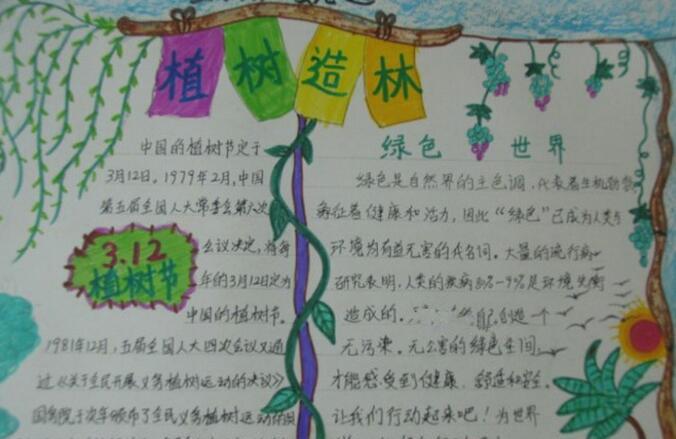 植树造林
中国的植树节定于
3月12日。1979年2月,中国
第五届全国人大常委会第六次
会议决定,将每
年的3月12日定为
中国的植树节。
3.12
植树节
1981年12月,五届全国人大四次会议又通
过《关于全民开展义务植树运动的决议》
国务院于次年颁布了全民义务植树运动的
绿色 世界
绿色是自然界的主色调,代表着生机勃勃
象征着健康和活力,因此“绿色”已成为人类与
环境为有益无害的代名词。大量的流行病
研究表明,人类的疾病 %-9%是环境失衡
造成的。 造一个
无污染。无公害的绿色空间,
才能感受到健康、舒适和安全。
让我们行动起来吧!为世界